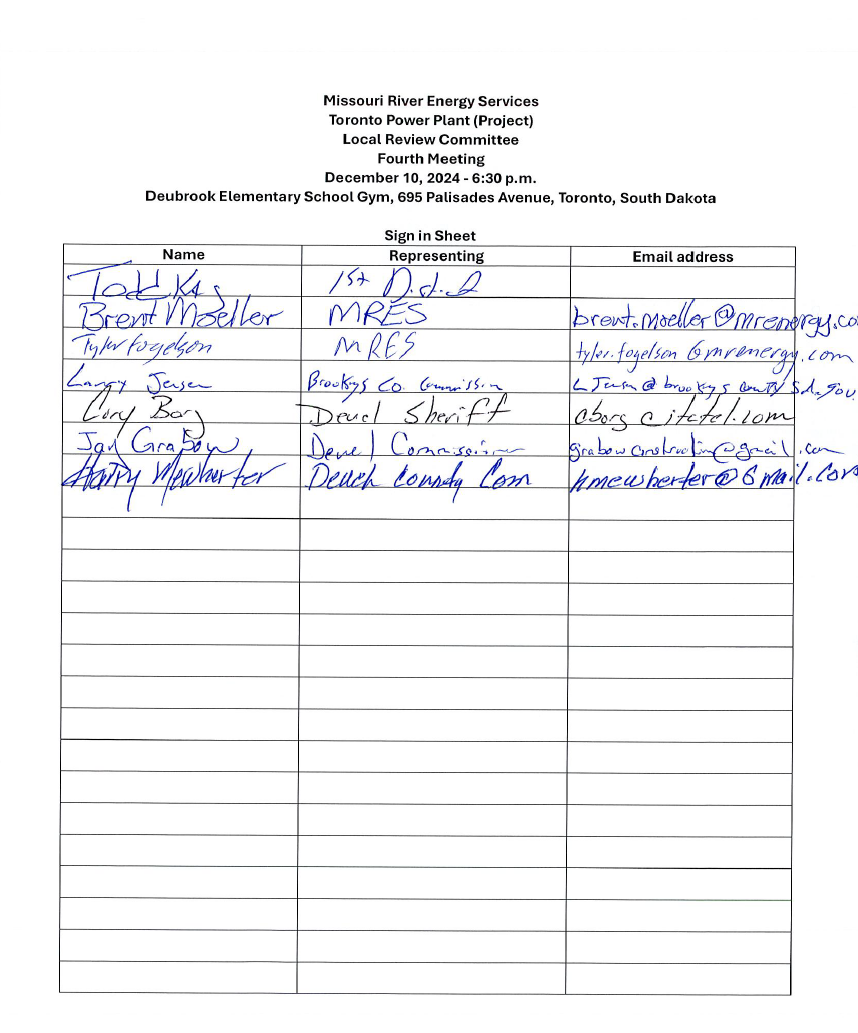 Missouri River Energy Services
Toronto Power Plant (Project)
Local Review Committee
Fourth Meeting
December 10, 2024 - 6:30 p.m.
Deubrook Elementary School Gym, 695 Palisades Avenue, Toronto, South Dakota
Sign in Sheet
Name Representing Email address
Todd 1st
Brent Moeller MRES brent.moeller@mrenergy.co
Tyler Fogelson MRES tyler.fogelson@mrenergy.com
Larry Jensen Brookings Co. Commission
Cory Borg Deuel Sheriff cborg@itctel.com
Jay Grabow Deuel Commissioner grabowconstruction@gmail.com
Harry Mewherter county Com hmewherter@Gmail.Com